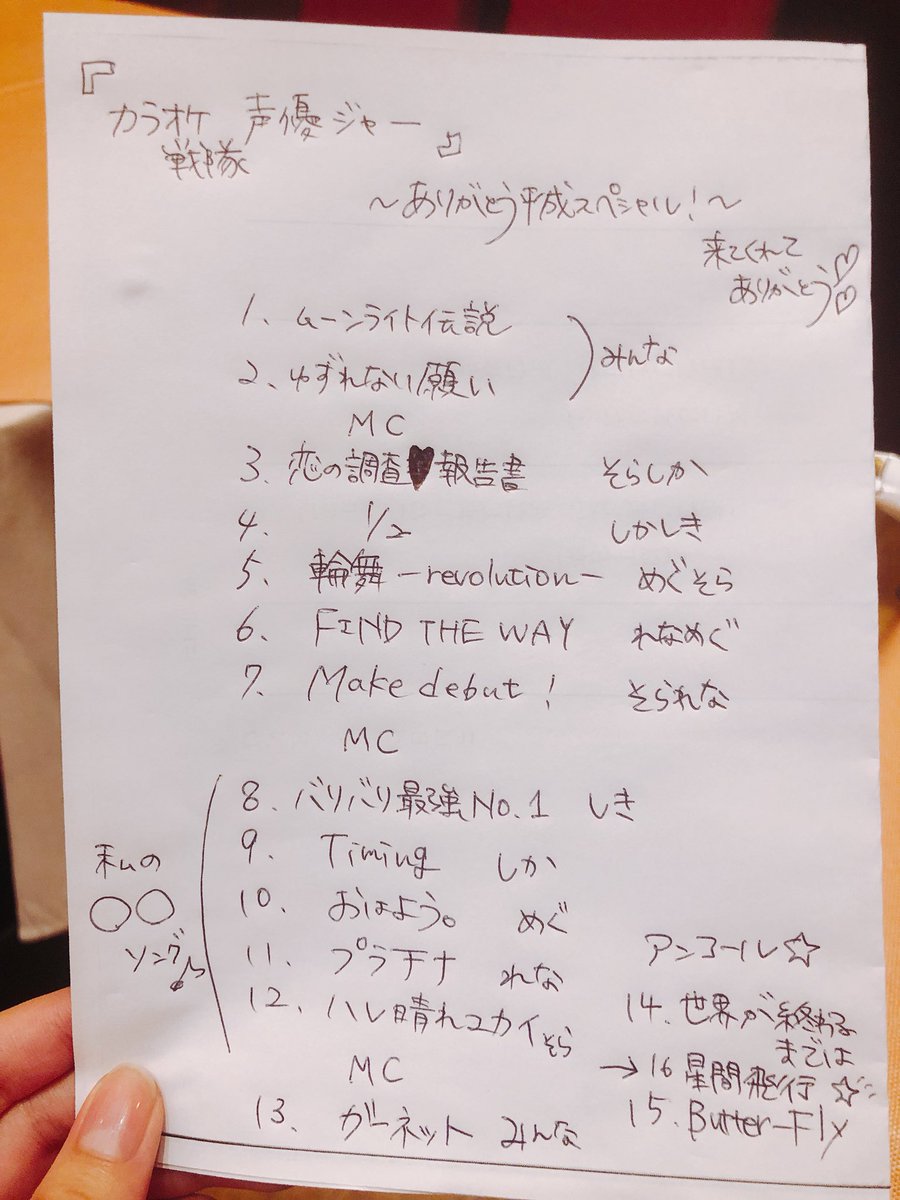 『
カラオケ 声優ジャー
戦隊
』
～ありがとう平成スペシャル!～
来てくれて
ありがとう♡♡
1、ムーンライト伝説
2、ゆずれない願い
みんな
MC
3、恋の調査♥報告書 そらしか
4、 1/2 しかしき
5、輪舞-revolution- めぐそら
6、FIND THE WAY れなめぐ
7、Make debut! そられな
MC
私の
○○
ソング♪
8、バリバリ最強No.1 しき
9、Timing しか
10、おはよう。 めぐ
11、プラチナ れな
12、ハレ晴レユカイ そら
MC
13、ガーネット みんな
アンコール☆
14、世界が終わる
までは
→16 星間飛行☆
15、Butter-Fly